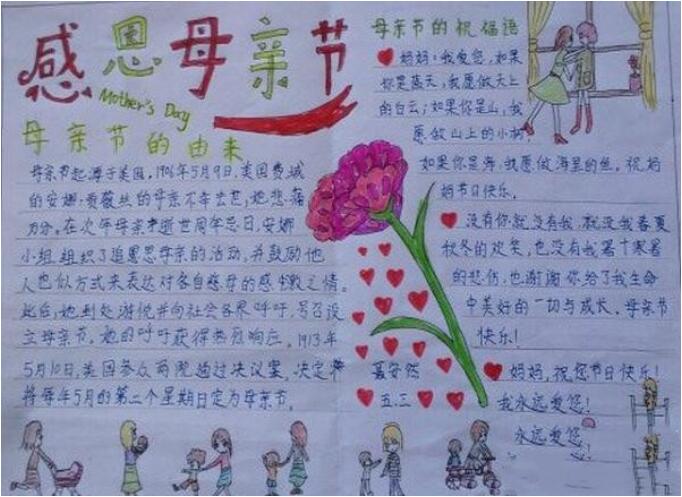 感恩母亲节
Mother's Day
母亲节的由来
母亲节起源于美国,1906年5月9日,美国费城
的安娜·贾薇丝的母亲不幸去世,她悲痛
万分。在次年母亲逝世周年忌日,安娜
小姐组织了追思母亲的活动,并鼓励他
人也以方式来表达对各自慈母的感激之情。
此后,她到处游说并向社会各界呼吁,号召设
立母亲节。她的呼吁获得热烈响应。1913年
5月10日,美国参众两院通过决议案,决定
将每年5月的第二个星期日定为母亲节。
母亲节的祝福语
妈妈:我爱您,如果
你是蓝天,我愿做天上
的白云;如果你是山,我
愿做山上的小树,
如果你是海,我愿做海里的鱼。祝妈
妈节日快乐。
没有你就没有我,就没我春夏
秋冬的欢笑,也没有我暑寒暑
的悲伤,也谢谢你给了我生命
中美好的一切与成长。母亲节
快乐!
妈妈,祝您节日快乐!
我永远爱您!
永远爱您!
聂安然
五.三